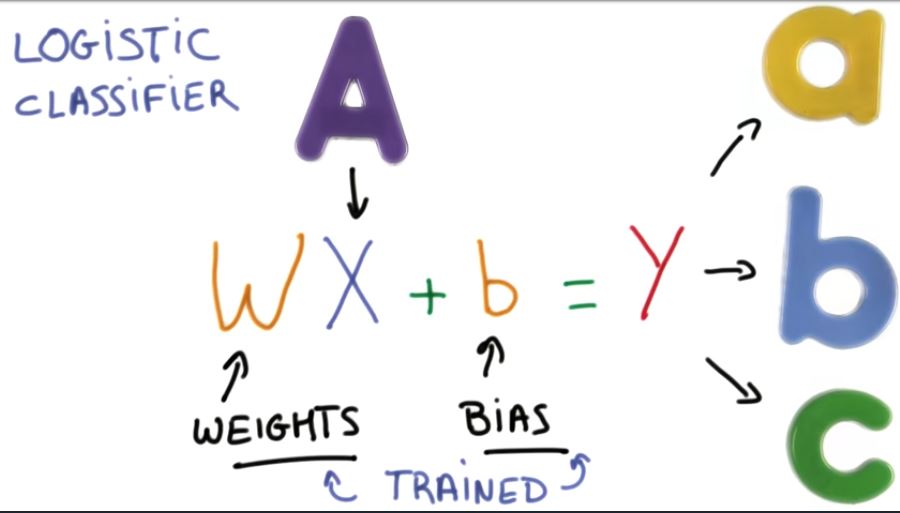 LOGISTIC
CLASSIFIER
A
a
WX + b = Y
b
WEIGHTS
BIAS
c
TRAINED